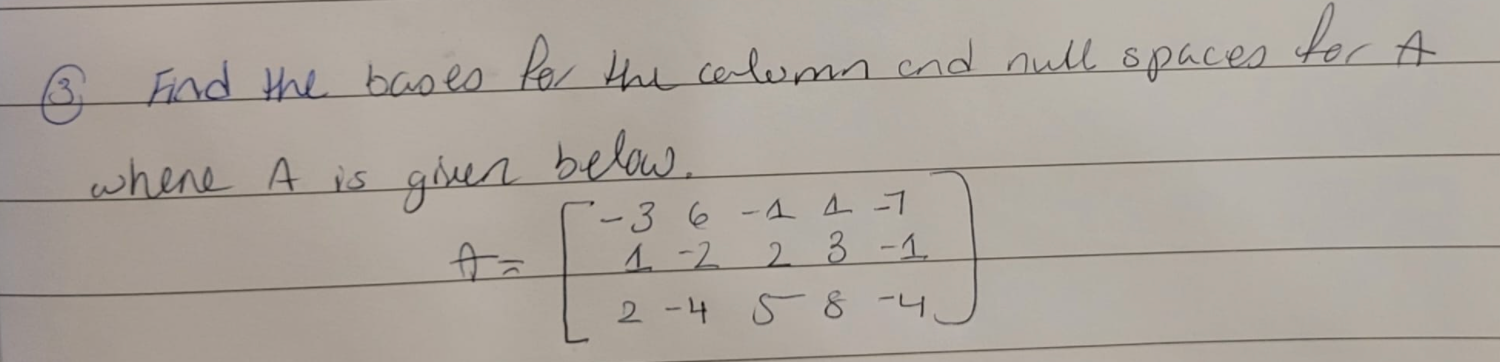 ③ Find the bases for the column and null spaces for A
where A is given below.
-3 6 -1 1 -7
A = 1 -2 2 3 -1
2 -4 5 8 -4